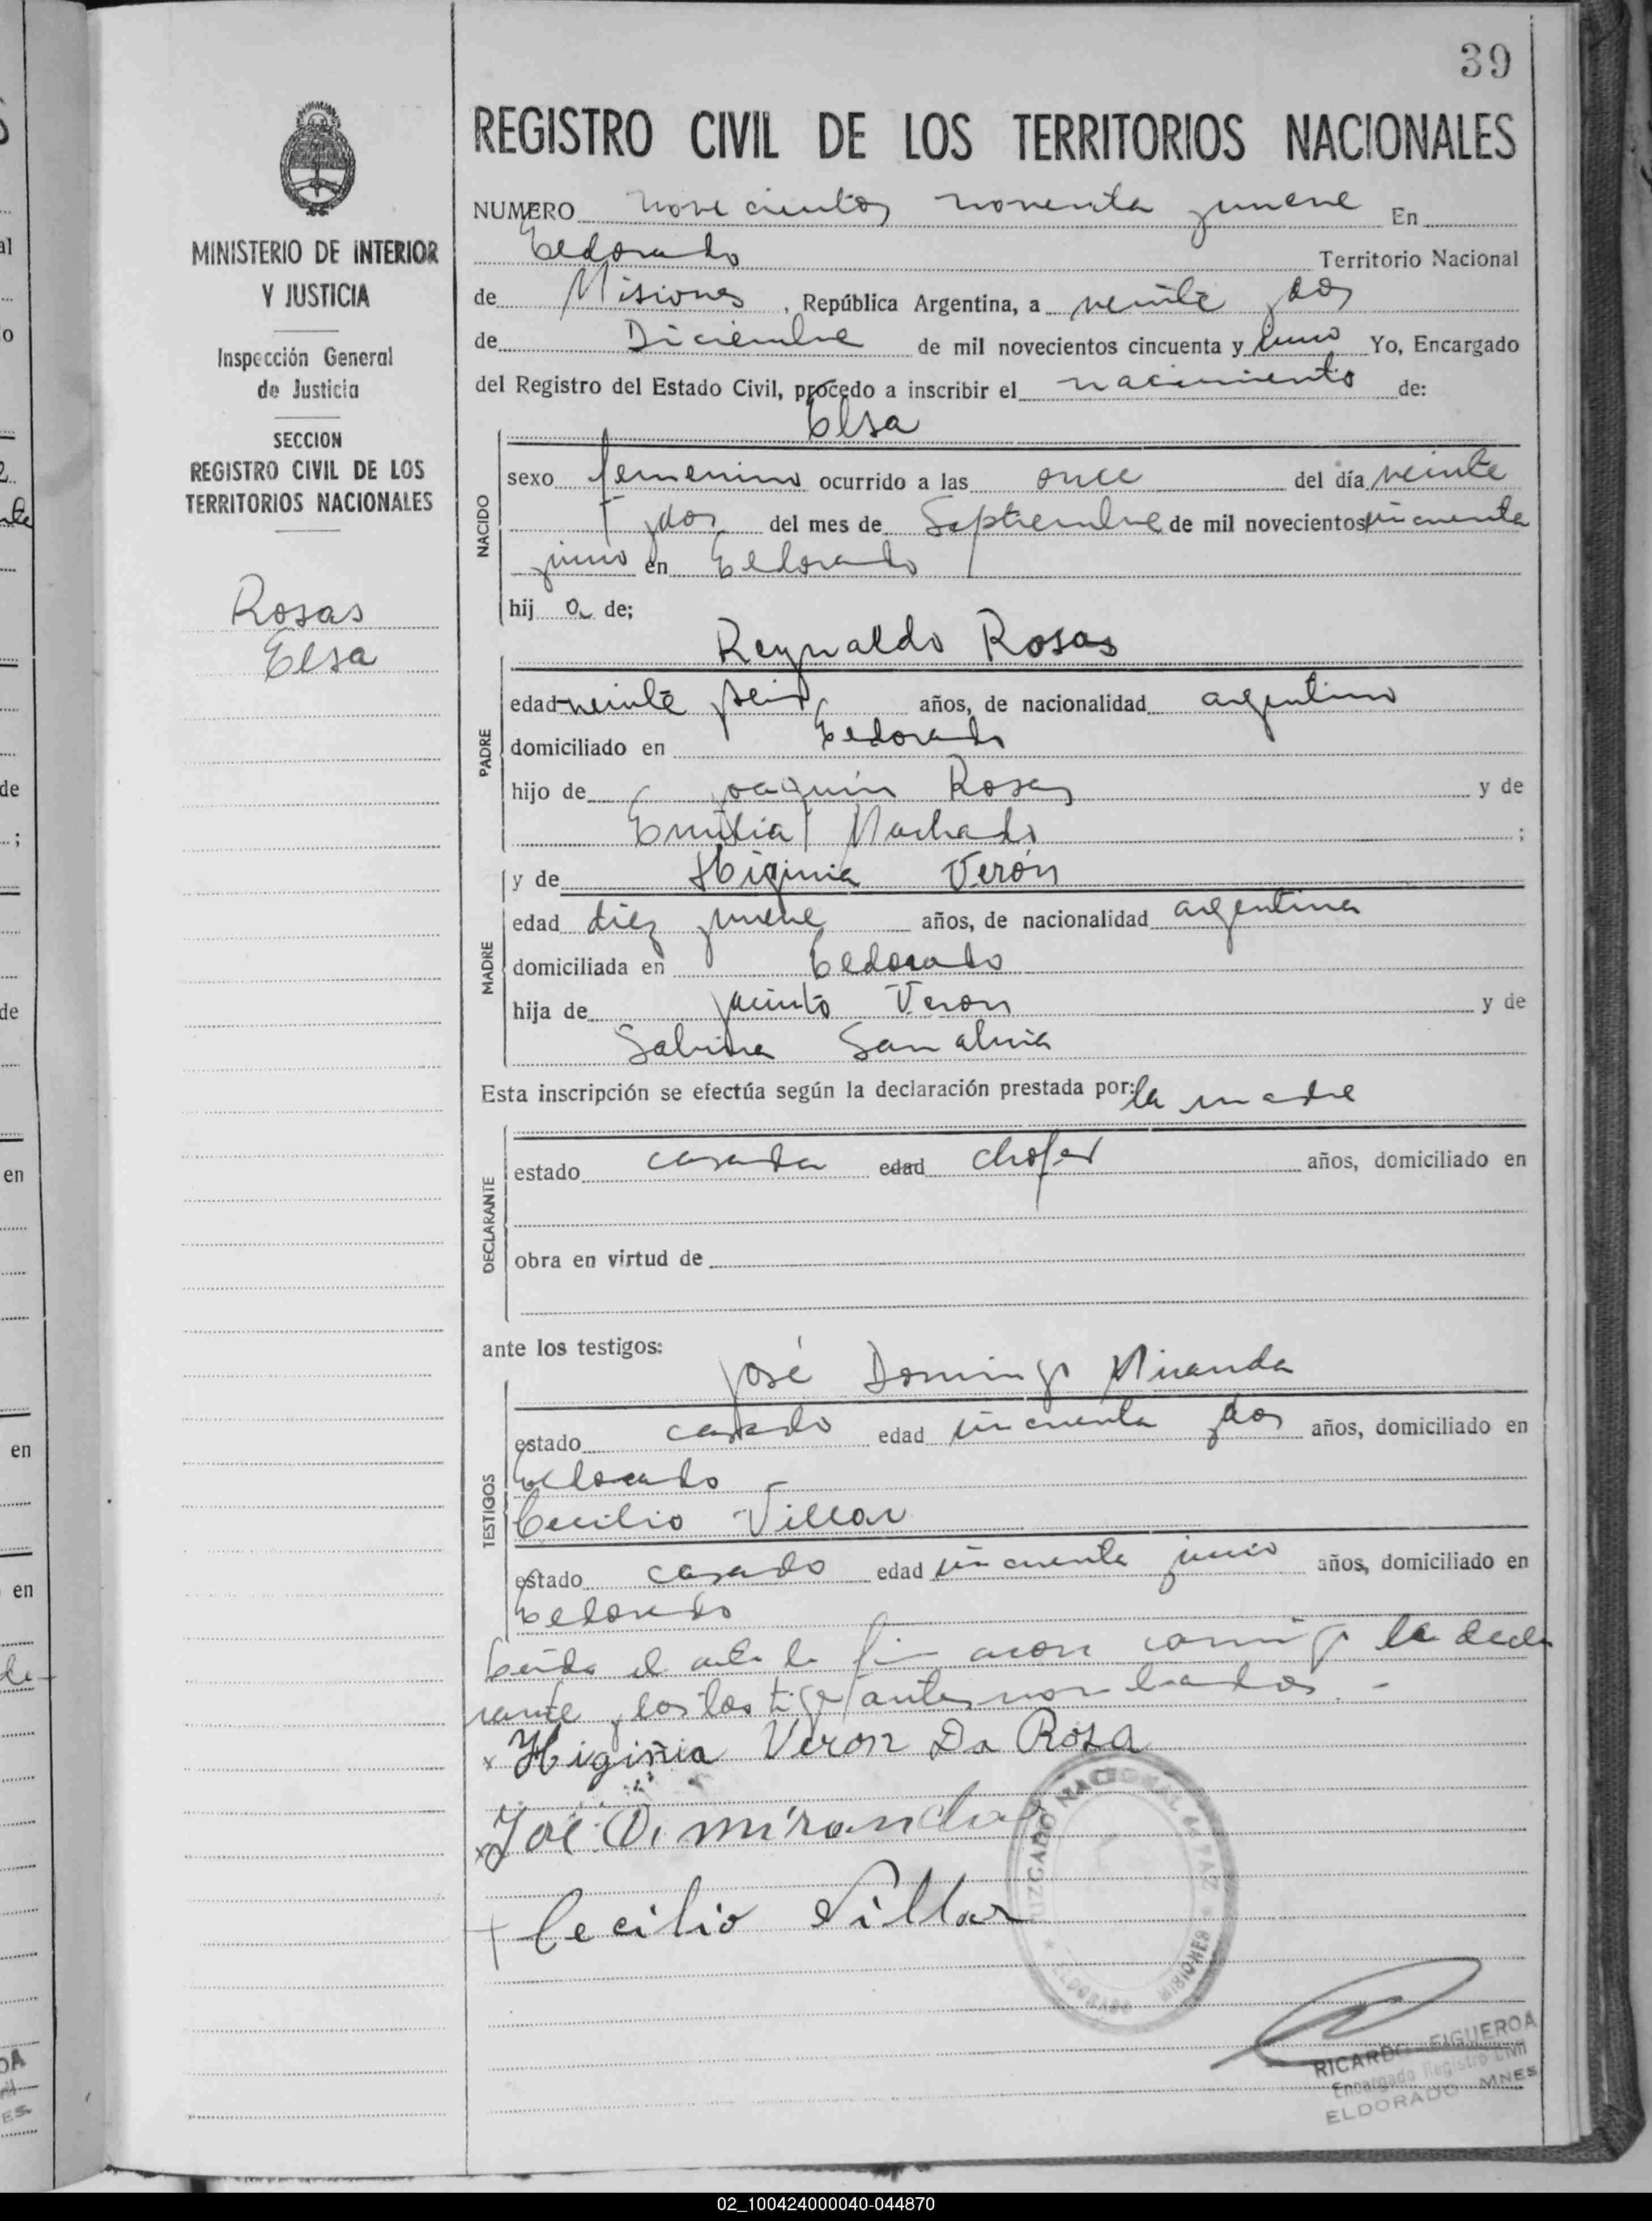 39
REGISTRO CIVIL DE LOS TERRITORIOS NACIONALES
MINISTERIO DE INTERIOR
Y JUSTICIA
Inspección General
de Justicia
SECCION
REGISTRO CIVIL DE LOS
TERRITORIOS NACIONALES
Rosas
Elsa
NUMERO novecientos noventa y nueve En
Eldorado Territorio Nacional
de Misiones, República Argentina, a veinte y dos
de Diciembre de mil novecientos cincuenta y uno Yo, Encargado
del Registro del Estado Civil, procedo a inscribir el nacimiento de:
Elsa
NACIDO
sexo femenino ocurrido a las once del día veinte
y dos del mes de Septiembre de mil novecientos cincuenta
y uno en Eldorado
hij a de;
Reynaldo Rosas
PADRE
edad veinte y seis años, de nacionalidad argentino
domiciliado en Eldorado
hijo de Joaquín Rosas y de
Emilia Machado ;
y de Higinia Verón
MADRE
edad diez y nueve años, de nacionalidad argentina
domiciliada en Eldorado
hija de Jacinto Veron y de
Sabina Sanabria
Esta inscripción se efectúa según la declaración prestada por: la madre
DECLARANTE
estado casada edad chofer años, domiciliado en
obra en virtud de
ante los testigos:
José Domingo Miranda
TESTIGOS
estado casado edad cincuenta y dos años, domiciliado en
Eldorado
Cecilio Villar
estado casado edad cincuenta y uno años, domiciliado en
Eldorado
Leída el acta la firmaron conmigo la decla
rante y los testigos antes nombrados. -
x Higinia Veron Da Rosa
x José D. miranda
+ Cecilio Villar
JUZGADO NACIONAL de PAZ
ELDORADO MISIONES
RICARDO FIGUEROA
Encargado Registro Civil
ELDORADO MNES
02_100424000040-044870